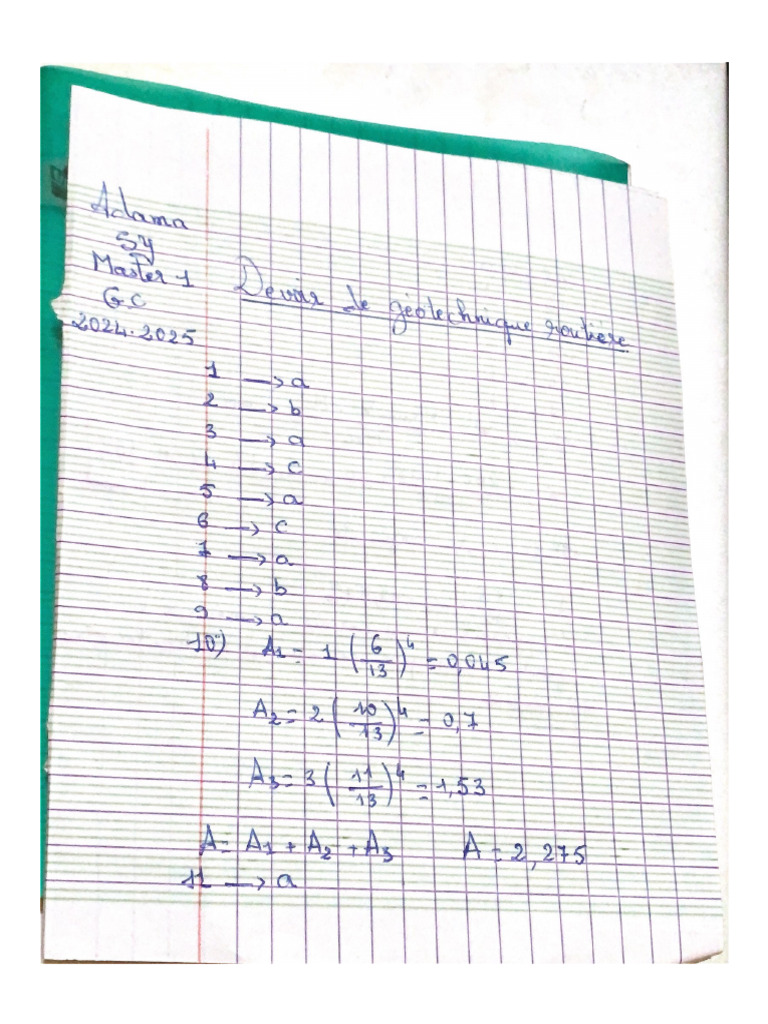 Adama
Sy
Master 1
G.C
2024-2025
Devoir de géotechnique routière
1 → a
2 → b
3 → a
4 → c
5 → a
6 → c
7 → a
8 → b
9 → a
10°) A1 = 1 (6/13)^4 = 0,045
A2 = 2 (10/13)^4 = 0,7
A3 = 3 (11/13)^4 = 1,53
A = A1 + A2 + A3 A = 2,275
11 → a